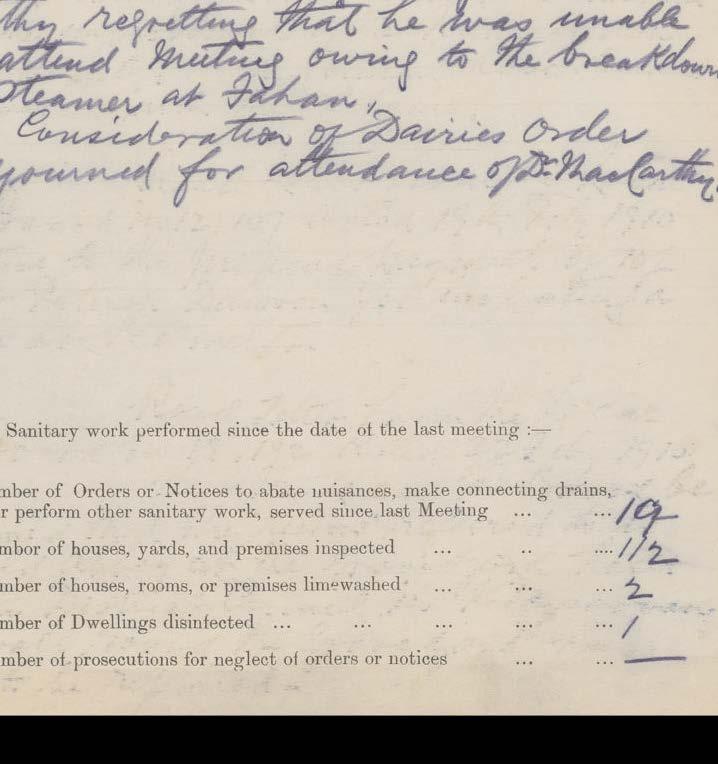 thy regretting that he was unable
attend Meeting owing to the breakdown
Steamer at Fahan,
Consideration of Dairies Order
journed for attendance of Dr. MacCarthy
Sanitary work performed since the date of the last meeting :—
mber of Orders or Notices to abate nuisances, make connecting drains,
r perform other sanitary work, served since last Meeting ... ... 19
mbor of houses, yards, and premises inspected ... .. .... 112
mber of houses, rooms, or premises limewashed ... ... ... 2
mber of Dwellings disinfected ... ... ... ... ... 1
mber of prosecutions for neglect of orders or notices ... ... —